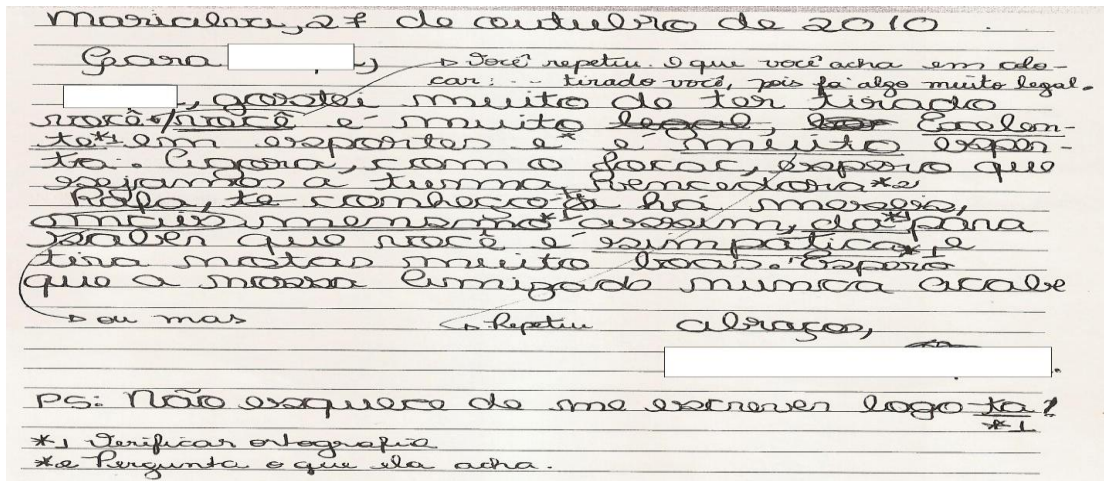 Marialva, 27 de outubro de 2010.
Cara
Você repetiu. O que você acha em colo-
car: ... tirado você, pois foi algo muito legal.
, gostei muito de ter tirado
você, você é muito legal, Excelen-
te*1 em esportes e* é muito esper-
ta. Agora, com o focac, espero que
sejamos a turma vencedora*2
Rafa, te conheço há meses,
amais memsmo*1 assim, da*1 para
saber que você é simpatica*1, e
tira notas muito boas. Espero
que a nossa amizade nunca acabe
ou mas
Repetiu
abraços,
PS: Não esquece de me escrever logo ta!
*1
*1 Verificar ortografia
*2 Pergunta o que ela acha.